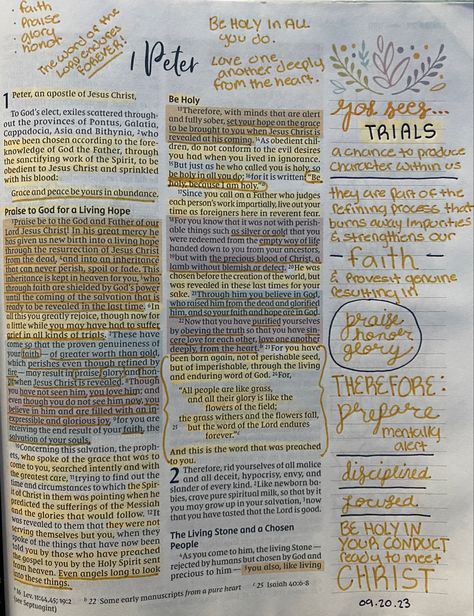 • faith
• Praise
• glory
• honor
The word of the
Lord endures
FOREVER!
BE HOLY IN ALL
you do.
Love one
another deeply
from the heart.
1 Peter
1 Peter, an apostle of Jesus Christ,
To God's elect, exiles scattered through-
out the provinces of Pontus, Galatia,
Cappadocia, Asia and Bithynia, 2who
have been chosen according to the fore-
knowledge of God the Father, through
the sanctifying work of the Spirit, to be
obedient to Jesus Christ and sprinkled
with his blood:
Grace and peace be yours in abundance.
Praise to God for a Living Hope
3Praise be to the God and Father of our
Lord Jesus Christ! In his great mercy he
has given us new birth into a living hope
through the resurrection of Jesus Christ
from the dead, 4and into an inheritance
that can never perish, spoil or fade. This
inheritance is kept in heaven for you, 5who
through faith are shielded by God's power
until the coming of the salvation that is
ready to be revealed in the last time. 6In
all this you greatly rejoice, though now for
a little while you may have had to suffer
grief in all kinds of trials. 7These have
come so that the proven genuineness of
your faith — of greater worth than gold,
which perishes even though refined by
fire — may result in praise, glory and hon-
or when Jesus Christ is revealed. 8Though
you have not seen him, you love him; and
even though you do not see him now, you
believe in him and are filled with an in-
expressible and glorious joy, 9for you are
receiving the end result of your faith, the
salvation of your souls.
10Concerning this salvation, the proph-
ets, who spoke of the grace that was to
come to you, searched intently and with
the greatest care, 11trying to find out the
time and circumstances to which the Spir-
it of Christ in them was pointing when he
predicted the sufferings of the Messiah
and the glories that would follow. 12It
was revealed to them that they were not
serving themselves but you, when they
spoke of the things that have now been
told you by those who have preached
the gospel to you by the Holy Spirit sent
from heaven. Even angels long to look
into these things.
Be Holy
13Therefore, with minds that are alert
and fully sober, set your hope on the grace
to be brought to you when Jesus Christ is
revealed at his coming. 14As obedient chil-
dren, do not conform to the evil desires
you had when you lived in ignorance.
15But just as he who called you is holy, so
be holy in all you do; 16for it is written: "Be
holy, because I am holy."
17Since you call on a Father who judges
each person's work impartially, live out your
time as foreigners here in reverent fear.
18For you know that it was not with perish-
able things such as silver or gold that you
were redeemed from the empty way of life
handed down to you from your ancestors,
19but with the precious blood of Christ, a
lamb without blemish or defect. 20He was
chosen before the creation of the world, but
was revealed in these last times for your
sake. 21Through him you believe in God,
who raised him from the dead and glorified
him, and so your faith and hope are in God.
22Now that you have purified yourselves
by obeying the truth so that you have sin-
cere love for each other, love one another
deeply, from the heart.b 23For you have
been born again, not of perishable seed,
but of imperishable, through the living
and enduring word of God. 24For,
"All people are like grass,
and all their glory is like the
flowers of the field;
the grass withers and the flowers fall,
25 but the word of the Lord endures
forever."
And this is the word that was preached
to you.
2 Therefore, rid yourselves of all malice
and all deceit, hypocrisy, envy, and
slander of every kind. 2Like newborn ba-
bies, crave pure spiritual milk, so that by it
you may grow up in your salvation, 3now
that you have tasted that the Lord is good.
The Living Stone and a Chosen
People
4As you come to him, the living Stone —
rejected by humans but chosen by God and
precious to him — 5you also, like living
16 Lev. 11:44,45; 19:2
b 22 Some early manuscripts from a pure heart
c 25 Isaiah 40:6-8
(see Septuagint)
God sees...
TRIALS
a chance to produce
character within us
they are part of the
refining process that
burns away impurities
& strengthens our
faith
& proves it genuine
resulting in
praise
honor
glory
THEREFORE:
prepare
mentally
alert
disciplined
focused
BE HOLY IN
YOUR CONDUCT
ready to meet
CHRIST
09.20.23